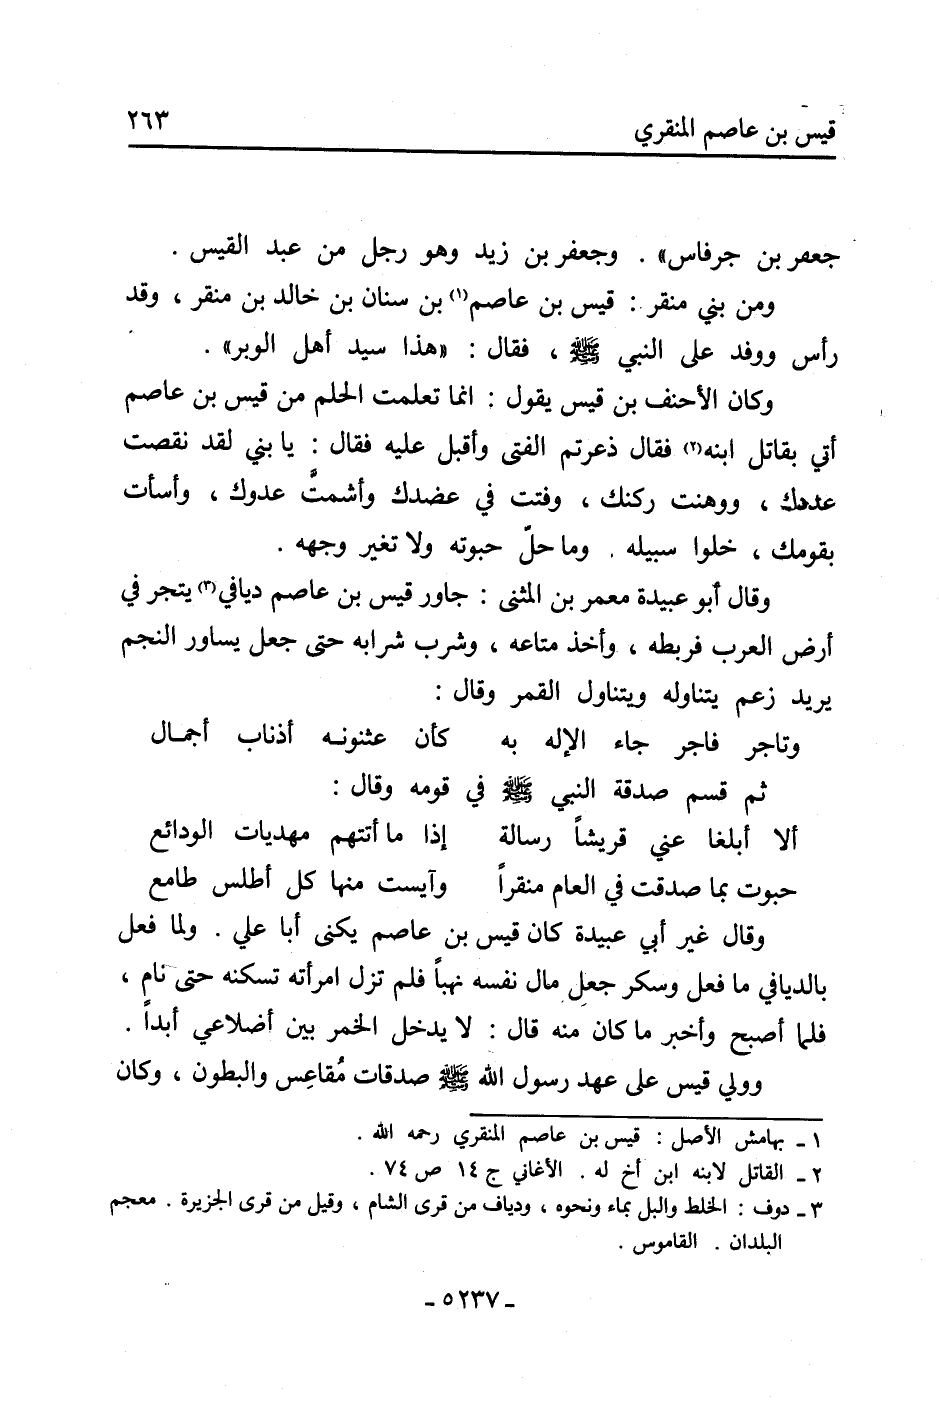 قيس بن عاصم المنقري ٢٦٣
جعفر بن جرفاس» . وجعفر بن زيد وهو رجل من عبد القيس .
ومن بني منقر : قيس بن عاصم(١) بن سنان بن خالد بن منقر ، وقد
رأس ووفد على النبي ﷺ ، فقال : «هذا سيد أهل الوبر» .
وكان الأحنف بن قيس يقول : انما تعلمت الحلم من قيس بن عاصم
أتي بقاتل ابنه(٢) فقال ذعرتم الفتى وأقبل عليه فقال : يا بني لقد نقصت
عددك ، ووهنت ركنك ، وفتت في عضدك وأشمتَّ عدوك ، وأسأت
بقومك ، خلوا سبيله . وما حلّ حبوته ولا تغير وجهه .
وقال أبو عبيدة معمر بن المثنى : جاور قيس بن عاصم ديافي(٣) يتجر في
أرض العرب فربطه ، وأخذ متاعه ، وشرب شرابه حتى جعل يساور النجم
يريد زعم يتناوله ويتناول القمر وقال :
وتاجر فاجر جاء الإله به كأن عثنونه أذناب أجمال
ثم قسم صدقة النبي ﷺ في قومه وقال :
ألا أبلغا عني قريشاً رسالة إذا ما أتتهم مهديات الودائع
حبوت بما صدقت في العام منقراً وآيست منها كل أطلس طامع
وقال غير أبي عبيدة كان قيس بن عاصم يكنى أبا علي . ولما فعل
بالديافي ما فعل وسكر جعل مال نفسه نهباً فلم تزل امرأته تسكنه حتى نام ،
فلما أصبح وأخبر ما كان منه قال : لا يدخل الخمر بين أضلاعي أبداً .
وولي قيس على عهد رسول الله ﷺ صدقات مُقاعِس والبطون ، وكان
١ - بهامش الأصل : قيس بن عاصم المنقري رحمه الله .
٢ - القاتل لابنه ابن أخ له . الأغاني ج ١٤ ص ٧٤ .
٣ - دوف : الخلط والبل بماء ونحوه ، ودياف من قرى الشام ، وقيل من قرى الجزيرة . معجم
البلدان . القاموس .
- ٥٢٣٧ -